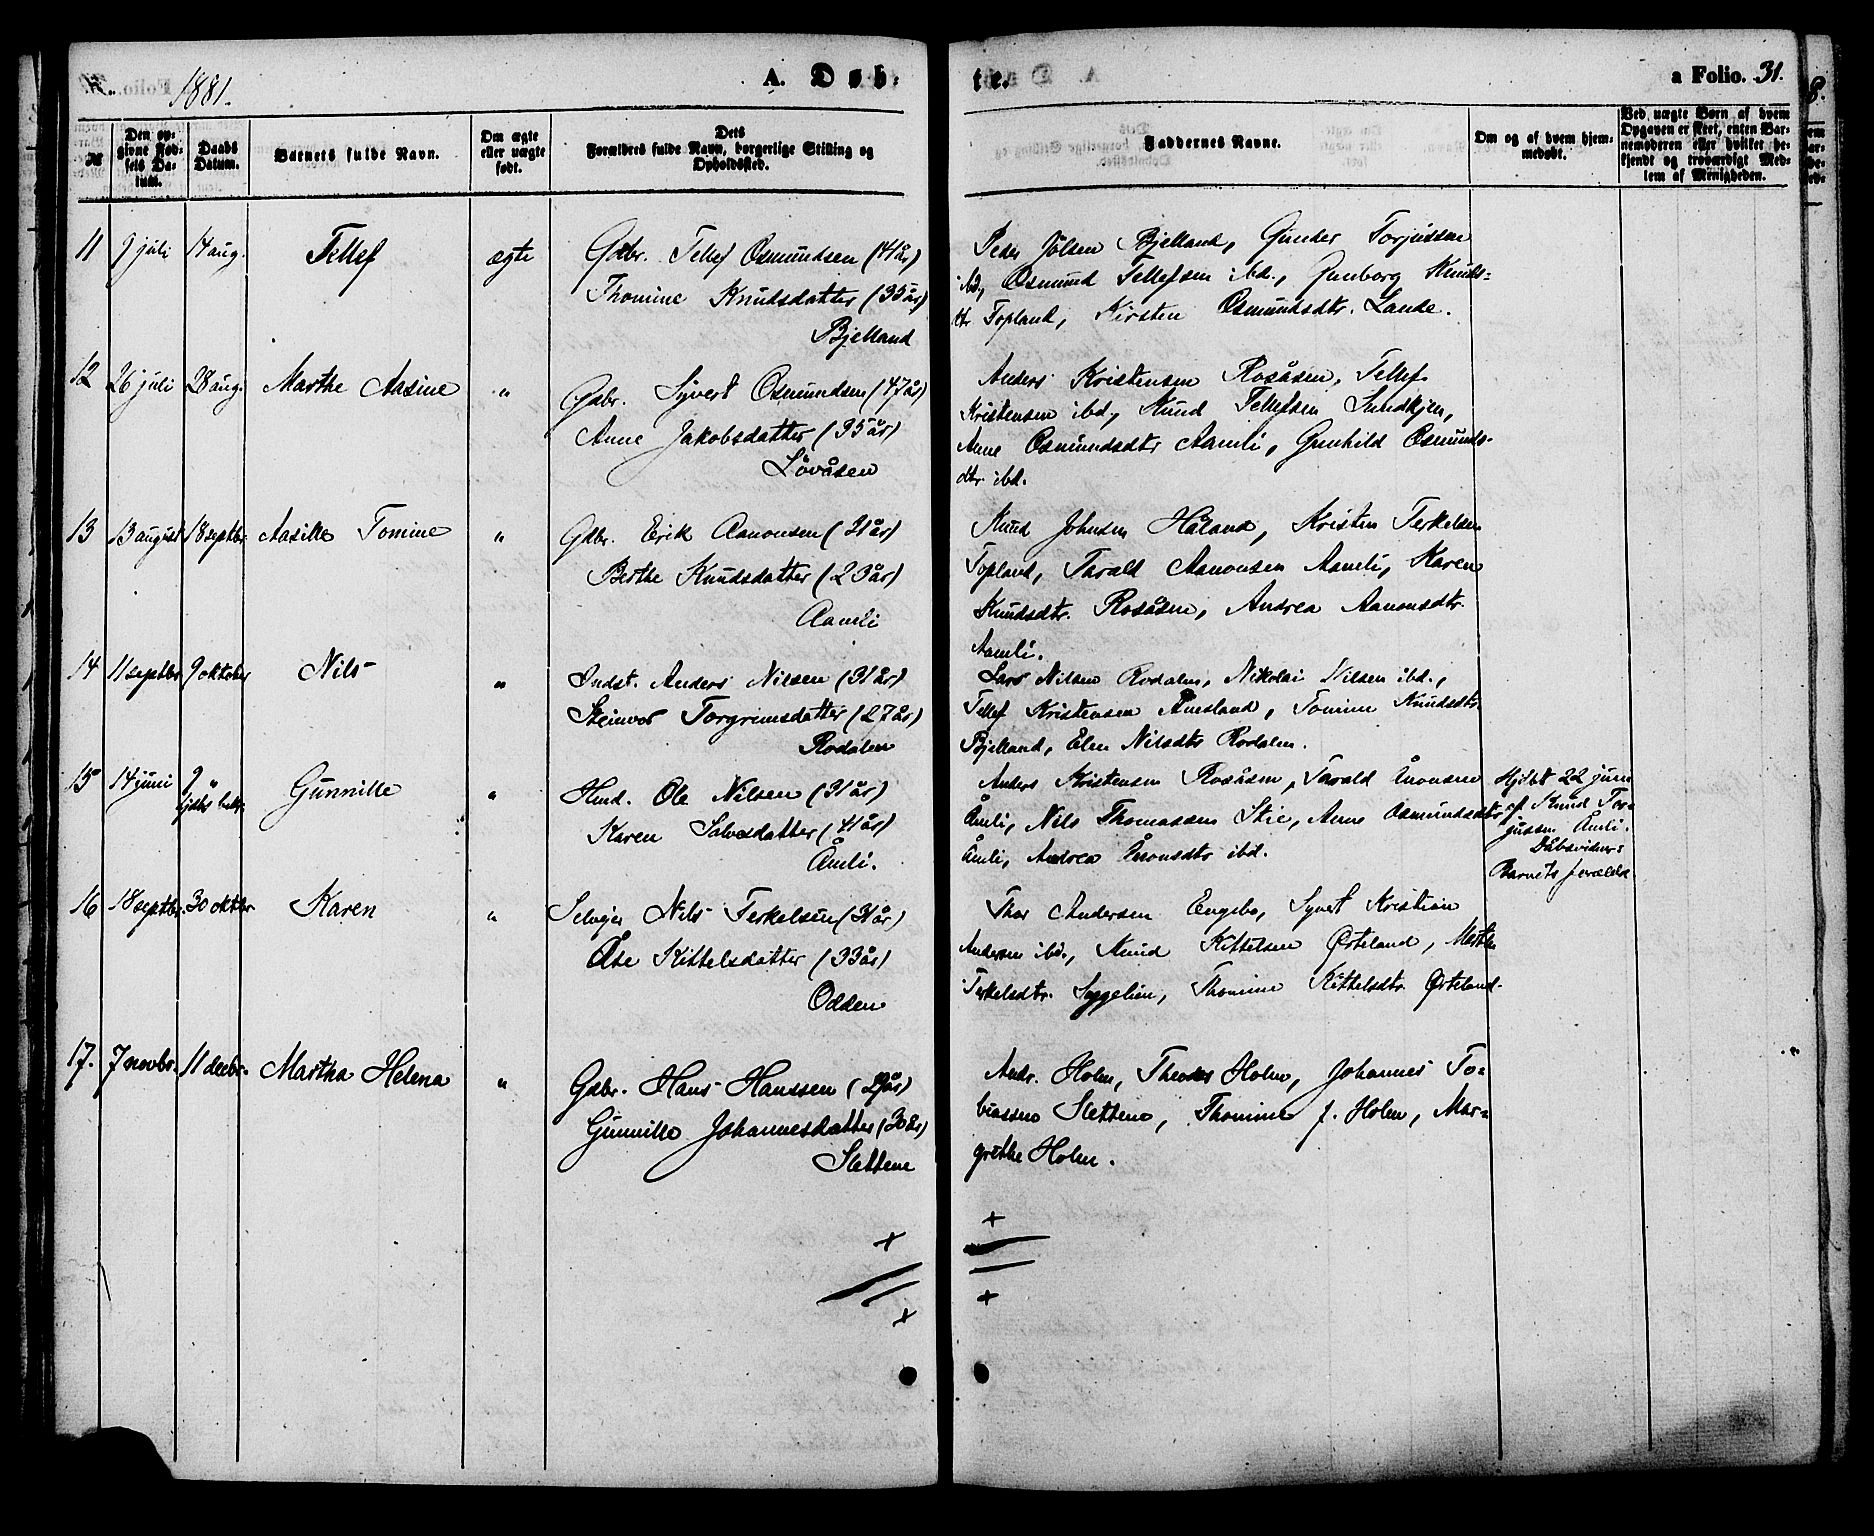 1881.
A. Døb-
te.
a Folio. 31.
№
Den opgivne Fødsels Datum.
Daabs Datum.
Barnets fulde Navn.
Om ægte eller uægte født.
Dets Forældres fulde Navn, borgerlige Stilling og Opholdssted.
Faddernes Navne.
Om og af hvem hjemmedøbt.
Ved uægte Børn af hvem Opgaven er skeet, enten Barnemoderen eller hvilket bekjendt og troværdigt Medlem af Menigheden.
11 9 juli 14 aug. Tellef ægte Gdbr. Tellef Osmundsen (44 år)
Thomine Knudsdatter (35 år)
Bjelland
Peder Jølsen Bjelland, Gunder Torjussen
ibd., Osmund Tellefsen ibd., Gunborg Knuds-
dtr Topland, Kirsten Osmundsdtr. Lande.
12 26 juli 28 aug. Marthe Aasine " Gdbr. Syvert Osmundsen (47 år)
Anne Jakobsdatter (35 år)
Løvåsen
Anders Kristensen Rosåsen, Tellef
Kristensen ibd., Knud Tellefsen Sundkjen,
Anne Osmundsdtr Aamli, Gunhild Osmunds-
dtr ibd.
13 13 august 18 septbr. Aasille Tomine " Gdbr. Erik Aanonsen (31 år)
Berthe Knudsdatter (23 år)
Aamli
Knud Johnsen Håland, Kristen Terkelsen
Topland, Tarald Aanonsen Aamli, Karen
Knudsdtr. Rosåsen, Andrea Aanonsdtr.
Aamli.
14 11 septbr 9 oktober Nils " Indst. Anders Nilsen (31 år)
Steinvor Torgrimsdatter (27 år)
Rodalen
Lars Nilsen Rodalen, Nikolai Nilsen ibd.,
Tellef Kristensen Åmesland, Tomine Knudsdtr.
Bjelland, Elen Nilsdtr Rodalen.
15 14 juni 9 " Gunnille " Husm. Ole Nilsen (31 år)
Karen Solvesdatter (41 år)
Åmli.
Anders Kristensen Rosåsen, Tarald Ånonsen
Åmli, Nils Thomassen Stie, Anne Osmundsdtr
Åmli, Andrea Ånonsdtr ibd.
Hjdbt 22 juni
af Knud Tor-
jussen Åmli.
Dåbsvidner:
Barnets forældre
16 18 septbr. 30 oktbr Karen " Selvejer Nils Terkelsen (31 år)
Åse Kittelsdatter (33 år)
Odden
Thor Andersen Engebo, Syvert Kristian
Andersen ibd., Knud Kittelsen Ørteland, Marthe
Terkelsdtr. Seggelien, Thomine Kittelsdtr. Ørteland.
17. 7 novbr. 11 decbr. Martha Helena " Gdbr. Hans Hanssen (29 år)
Gunnille Johannesdatter (30 år)
Slettene
Andr. Holm, Theodor Holm, Johannes To-
biassen Slettene, Thomine f. Holm, Mar-
grethe Holm.